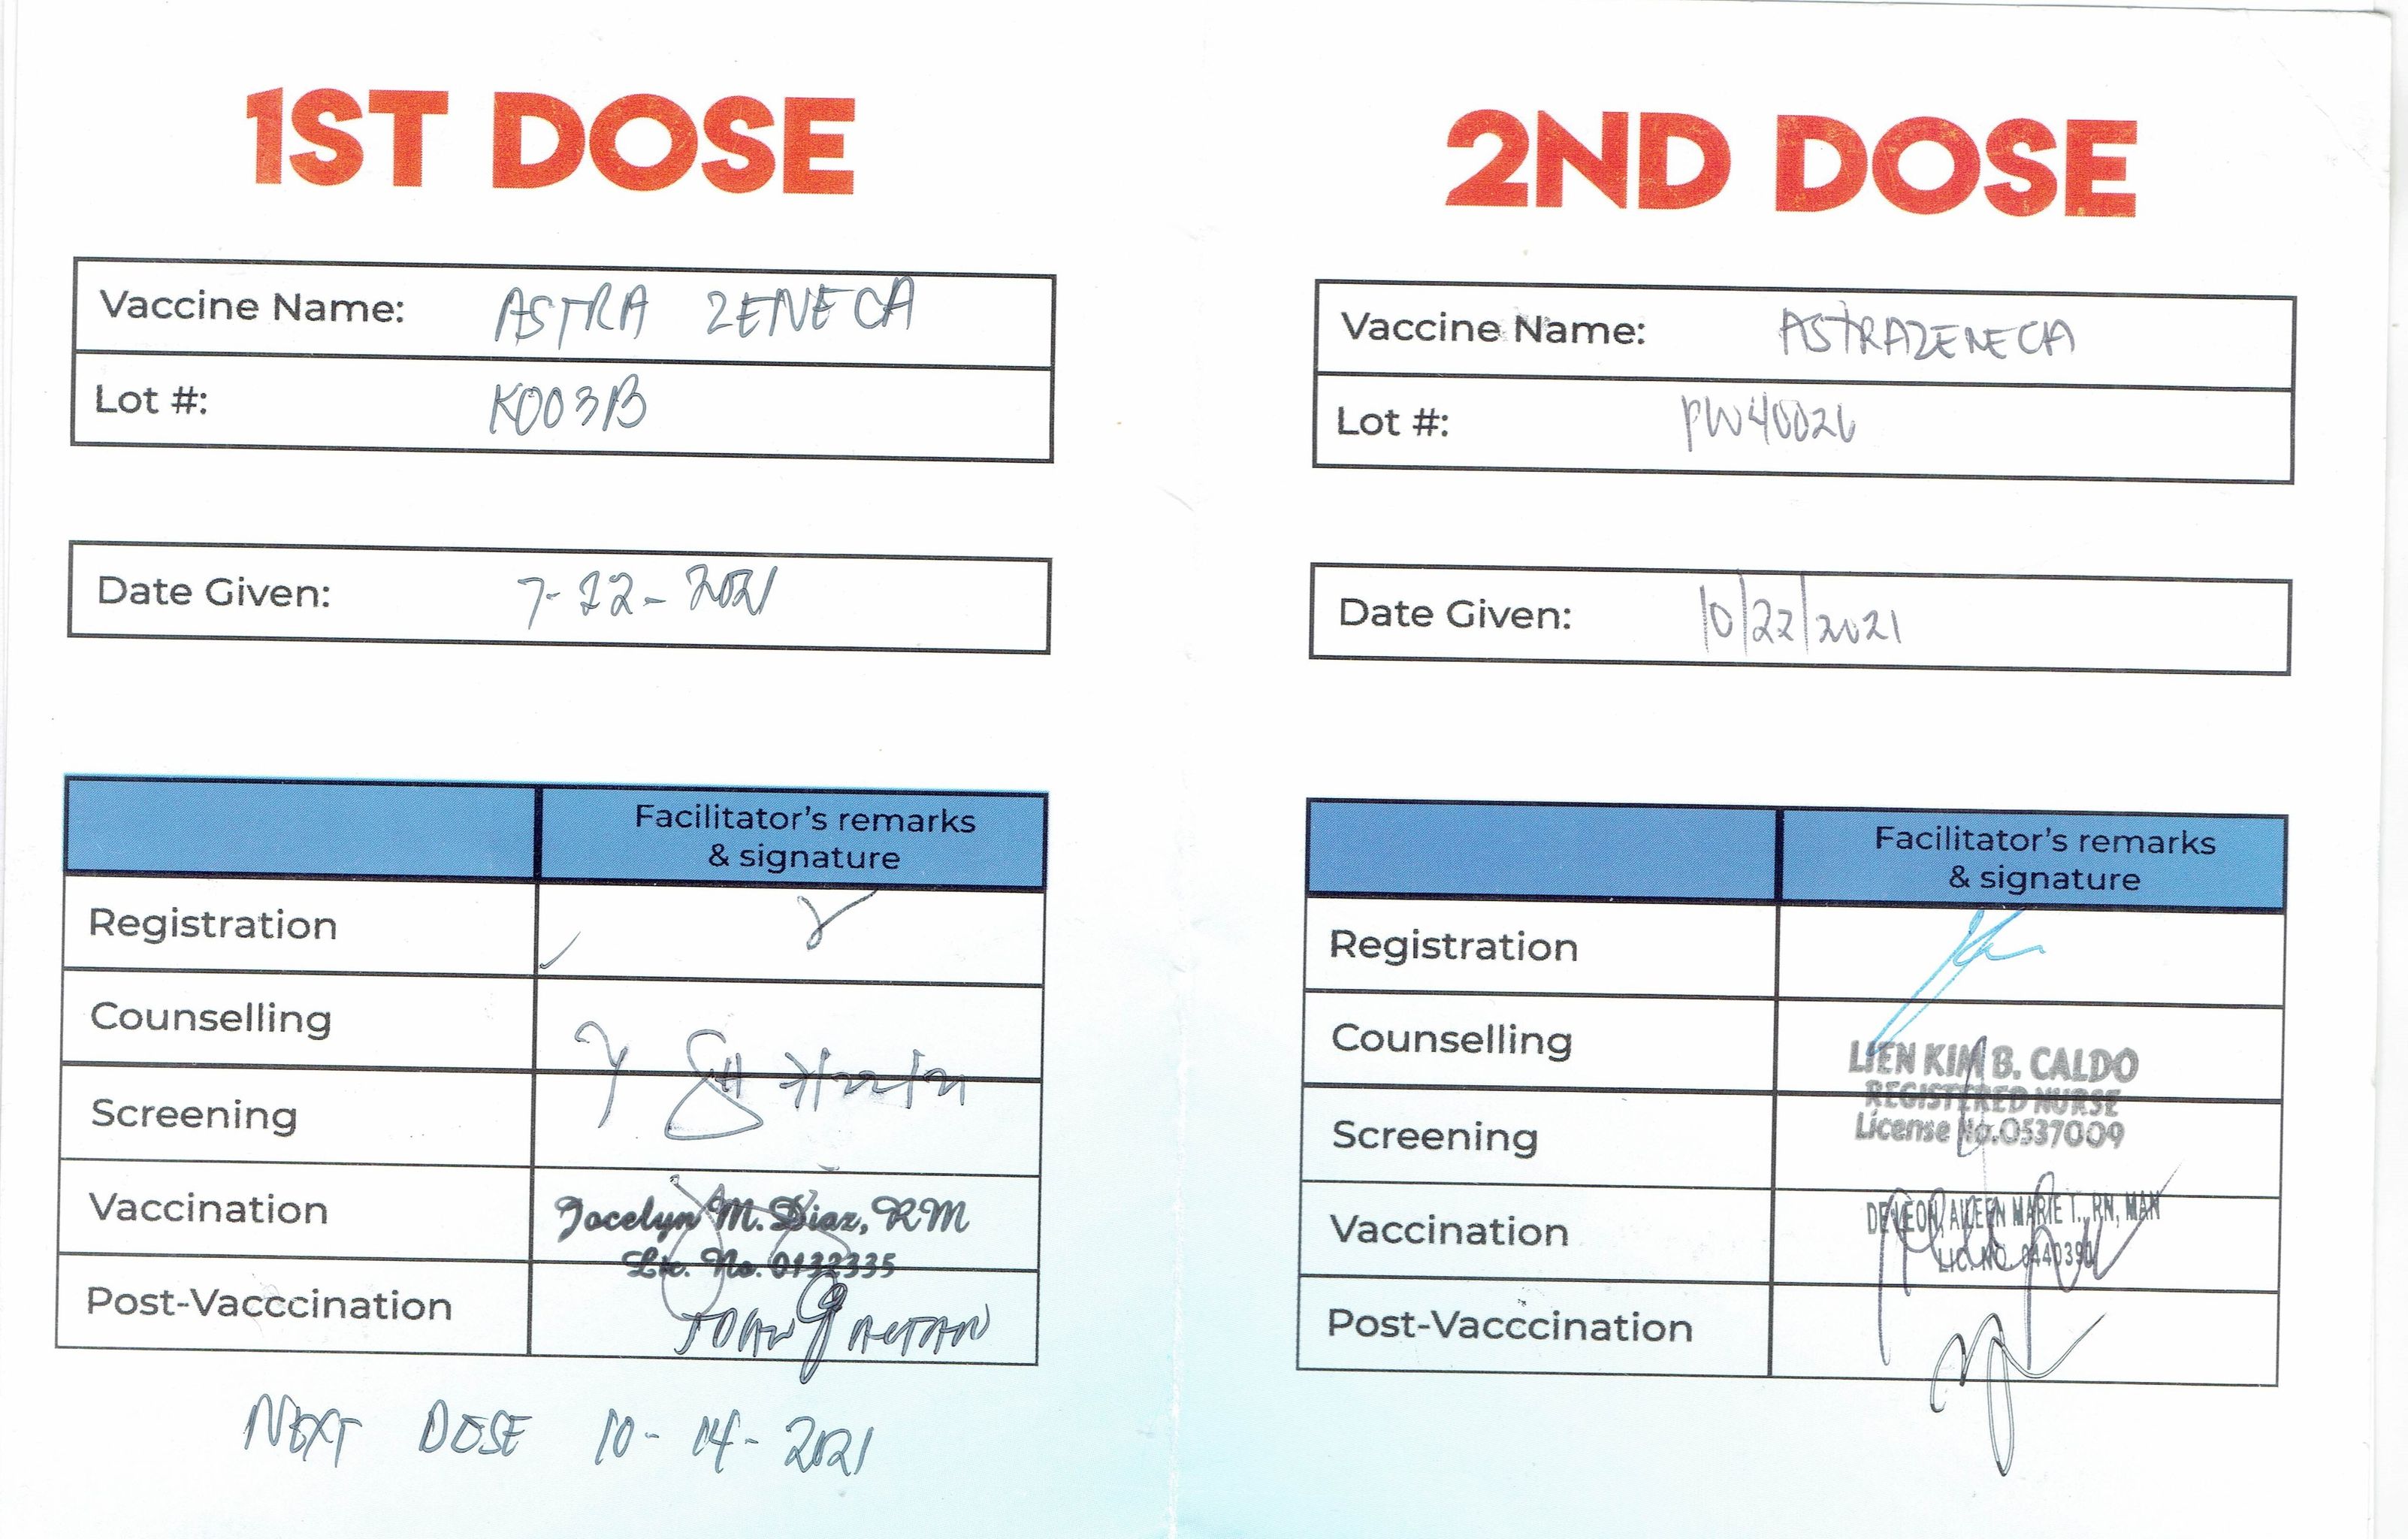 1ST DOSE
Vaccine Name: ASTRA ZENECA
Lot #: K003B
Date Given: 7-22-2021
Facilitator's remarks
& signature
Registration
Counselling
Screening
7/22/21
Vaccination Jocelyn M. Diaz, RM
Lic. No. 0132335
Post-Vacccination
NEXT DOSE 10-14-2021
2ND DOSE
Vaccine Name: ASTRAZENECA
Lot #: PW40026
Date Given: 10/22/2021
Facilitator's remarks
& signature
Registration
Counselling LIEN KIM B. CALDO
REGISTERED NURSE
Screening License No.0537009
Vaccination DE LEON, AILEEN MARIE T., RN, MAN
LIC. NO. 0440390
Post-Vacccination